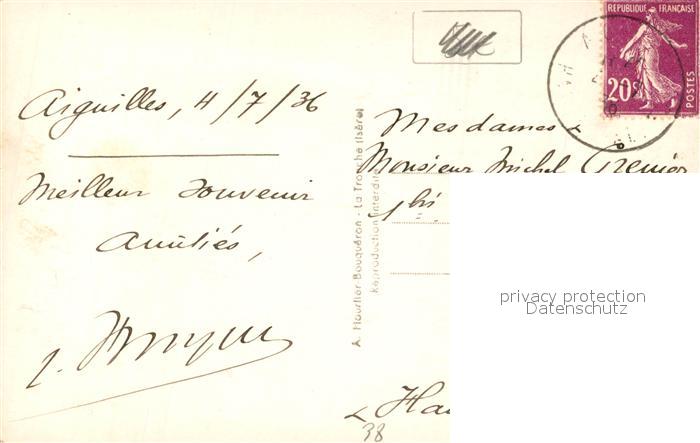 Aiguilles, 4/7/36
Meilleur souvenir
Amitiés,
A. Hourlier-Bouquéron - La Tronche (Isère)
Reproduction interdite
RÉPUBLIQUE FRANÇAISE
20c
POSTES
Mesdames &
Monsieur Michel Grenier
1 bis
privacy protection
Datenschutz
38